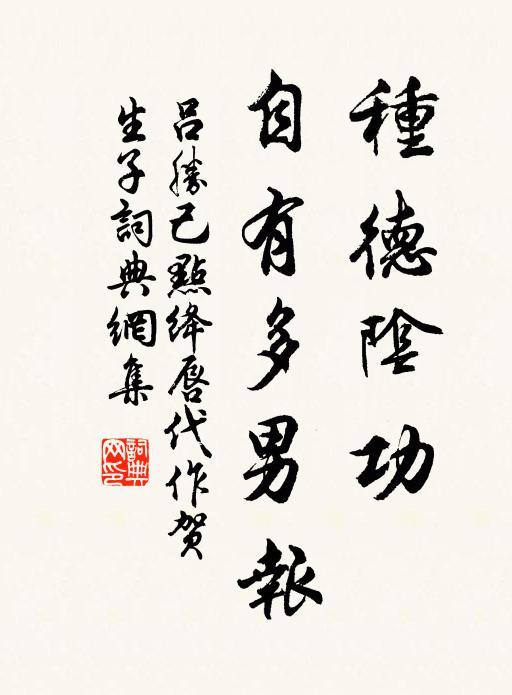 種德陰功
自有多男報
呂勝己點絳唇代作賀
生子詞典網集
詞典網印